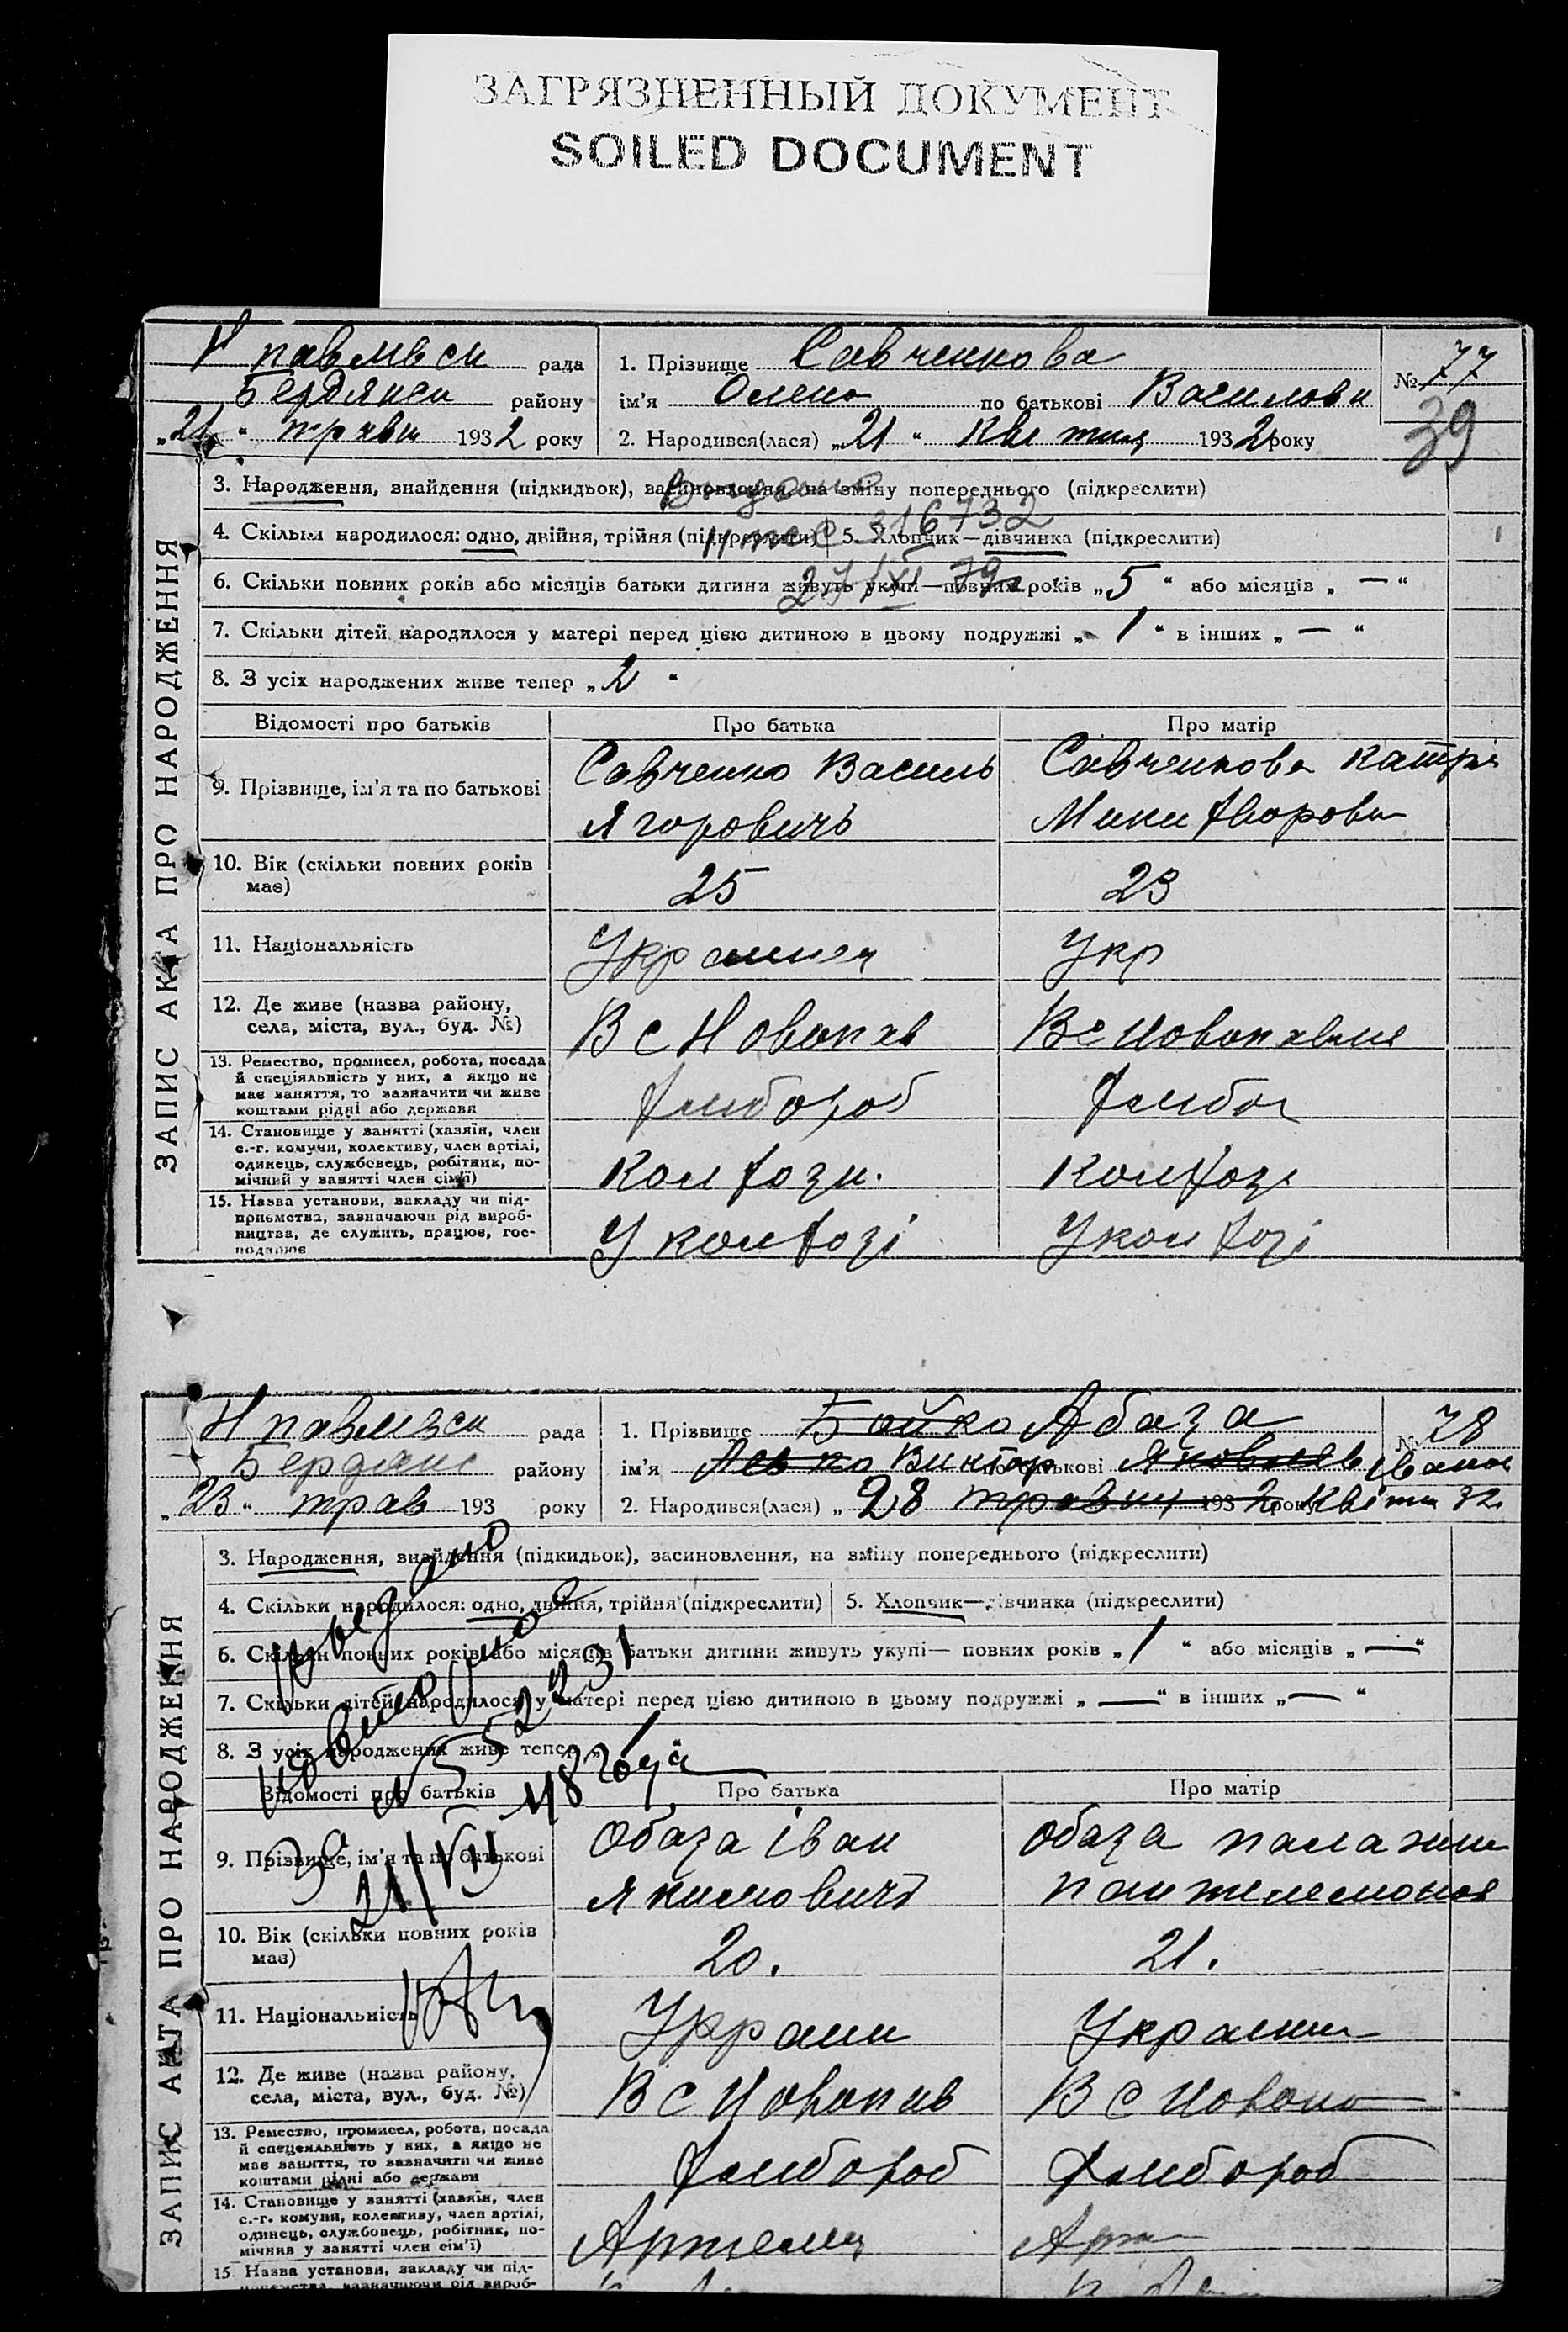 ЗАГРЯЗНЕННЫЙ ДОКУМЕНТ
SOILED DOCUMENT
ЗАПИС АКТА ПРО НАРОДЖЕННЯ
павлвськ рада
Бердянськ району
„21“ травн 1932 року
1. Прізвище Савченкова
ім'я Олена по батькові Василовн
2. Народився(лася) „21“ Квітня 1932 року
№ 77
39
3. Народження, знайдення (підкидьок), засиновлення, на зміну попереднього (підкреслити)
4. Скільки народилося: одно, двійня, трійня (підкреслити) 5. Хлопчик—дівчинка (підкреслити)
316732
6. Скільки повних років або місяців батьки дитини живуть укупі—повних років „5“ або місяців „—“
27/XI
7. Скільки дітей народилося у матері перед цією дитиною в цьому подружжі „1“ в інших „—“
8. З усіх народжених живе тепер „2“
Відомості про батьків Про батька Про матір
9. Прізвище, ім'я та по батькові
Савченко Василь
Ягоровичь
Савченкова Катря
10. Вік (скільки повних років має) 25 23
11. Національність Укр
12. Де живе (назва району, села, міста, вул., буд. №)
В с Новопав
13. Ремество, промисел, робота, посада
й спеціяльність у них, а якщо не
має заняття, то зазначити чи живе
коштами рідні або держави
Хлибороб
14. Становище у занятті (хазяїн, член
с.-г. комуни, колективу, член артілі,
одинець, службовець, робітник, по-
мічний у занятті член сім'ї)
15. Назва установи, закладу чи під-
приємства, зазначаючи рід вироб-
ництва, де служить, працює, гос-
подарює
У колхозі У колхозі
ЗАПИС АКТА ПРО НАРОДЖЕННЯ
Н павлвськ рада
Бердянс району
„23“ трав 193 року
1. Прізвище Бойко Абаза
ім'я Виктор по батькові Іванов
2. Народився(лася) „28 травня 1932 року Квітня 32
№ 78
3. Народження, знайдення (підкидьок), засиновлення, на зміну попереднього (підкреслити)
4. Скільки народилося: одно, двійня, трійня (підкреслити) 5. Хлопчик—дівчинка (підкреслити)
6. Скільки повних років або місяців батьки дитини живуть укупі— повних років „1“ або місяців „—“
7. Скільки дітей народилося у матері перед цією дитиною в цьому подружжі „—“ в інших „—“
8. З усіх народжених живе тепер „1“
Відомості про батьків Про батька Про матір
21/VII
9. Прізвище, ім'я та по батькові
Обаза Іван
Якимовичь
Обаза
10. Вік (скільки повних років має) 20. 21.
11. Національність
12. Де живе (назва району,
села, міста, вул., буд. №)
В с Новопав
13. Ремество, промисел, робота, посада
й спеціяльність у них, а якщо не
має заняття, то зазначити чи живе
коштами рідні або держави
Хлибороб Хлибороб
14. Становище у занятті (хазяїн, член
с.-г. комуни, колективу, член артілі,
одинець, службовець, робітник, по-
мічнив у занятті член сім'ї)
15. Назва установи, закладу чи під-